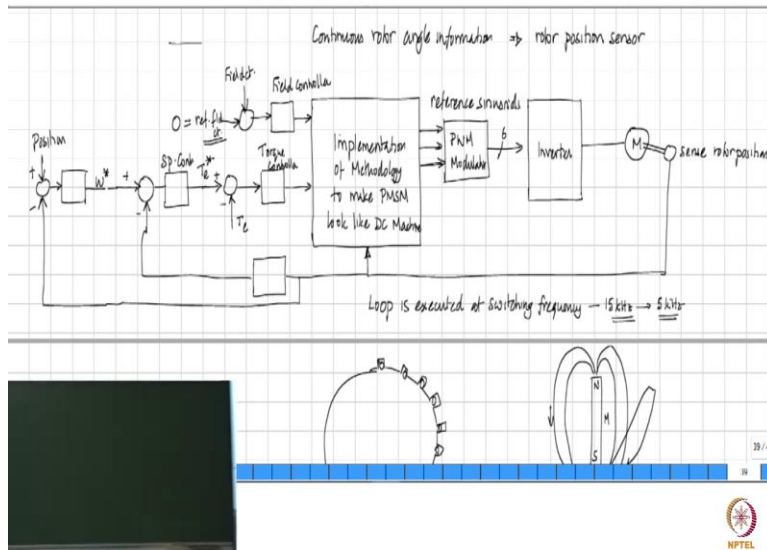 Continuous rotor angle information ⇒ rotor position sensor
Field ct.
Field Controller
0 = ref. fld
ct
reference sinusoids
Position
+
-
W*
+
-
Sp. Cont
Te*
+
-
Te
Torque
Controller
Implementation
of Methodology
to make PMSM
look like DC Machine
PWM
Modulator
6
Inverter
M
sense rotor position
Loop is executed at switching frequency - 15 kHz → 5 kHz
N
M
S
39
NPTEL